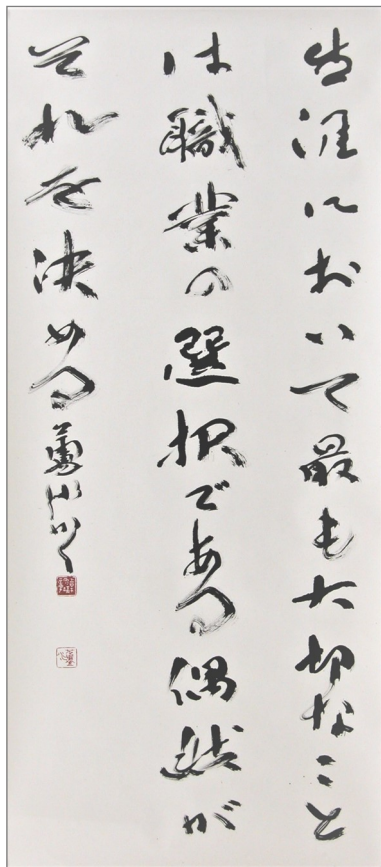 生涯において最も大切なこと
は職業の選択である偶然が
それを決める